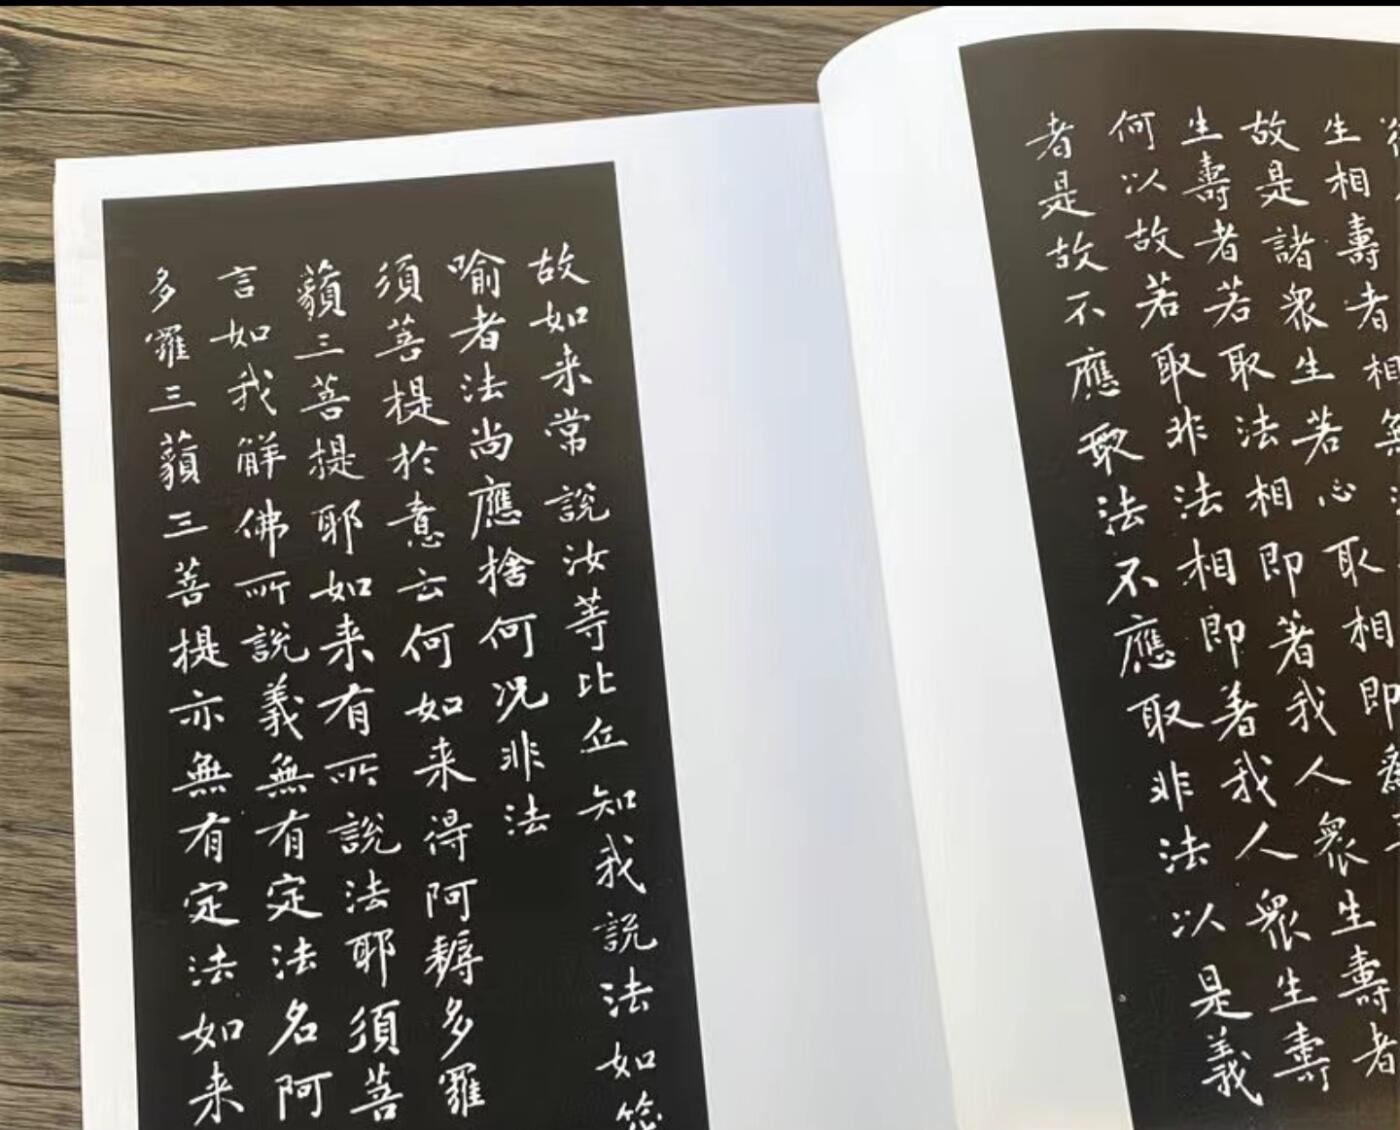 生相壽者相無
故是諸衆生若心取相即為
生壽者若取法相即著我人衆生壽者
何以故若取非法相即著我人衆生壽
者是故不應取法不應取非法以是義
故如来常說汝等比丘知我說法如筏
喻者法尚應捨何况非法
須菩提於意云何如来得阿耨多羅
藐三菩提耶如来有所說法耶須菩
言如我解佛所說義無有定法名阿
多羅三藐三菩提亦無有定法如来